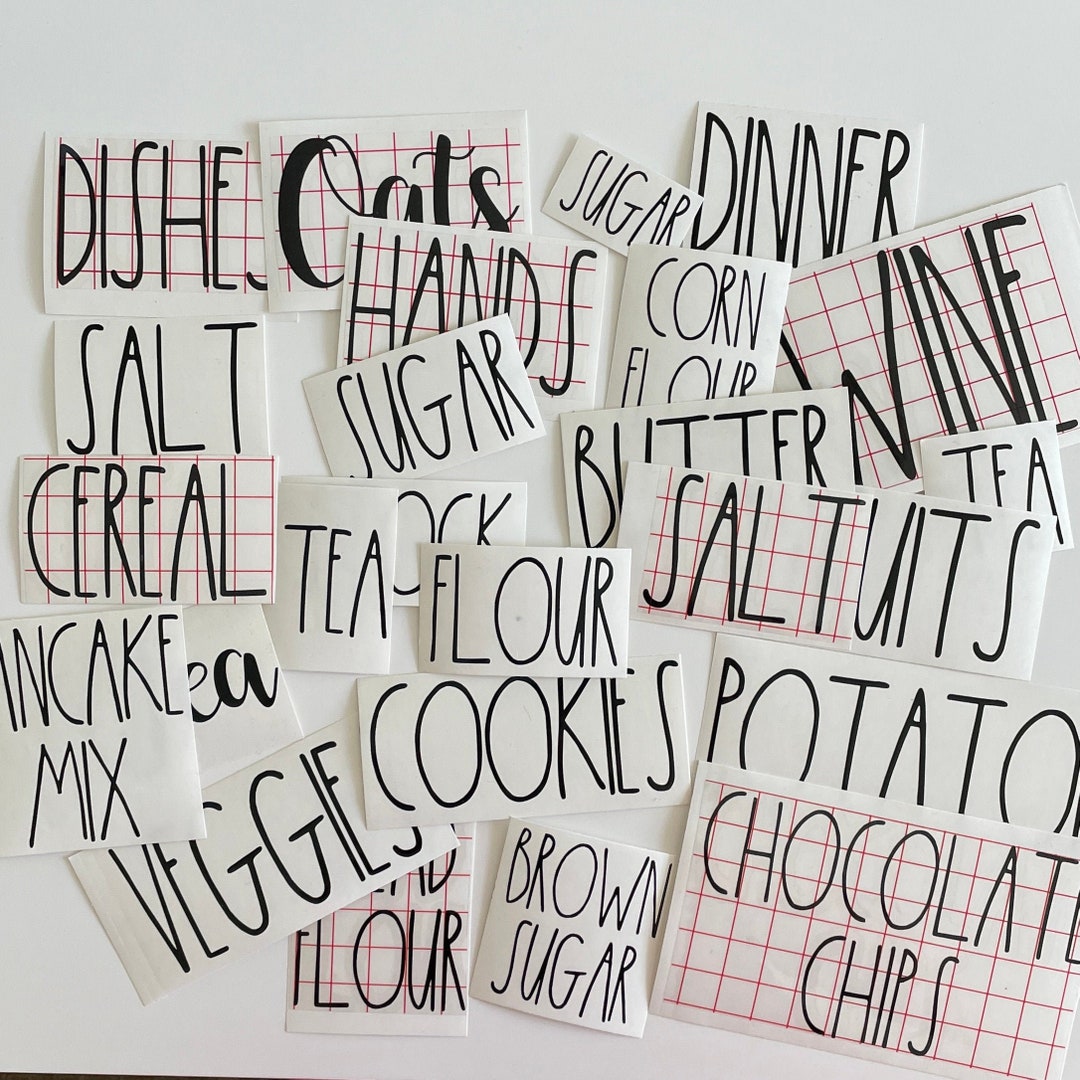 DISHES
Oats
SUGAR
DINNER
HANDS
CORN
FLOUR
WINE
SALT
SUGAR
BUTTER
TEA
CEREAL
TEA
OCK
FLOUR
SALT
UITS
NCAKE
MIX
ea
COOKIES
POTATO
VEGGIES
FLOUR
BROWN
SUGAR
CHOCOLATE
CHIPS